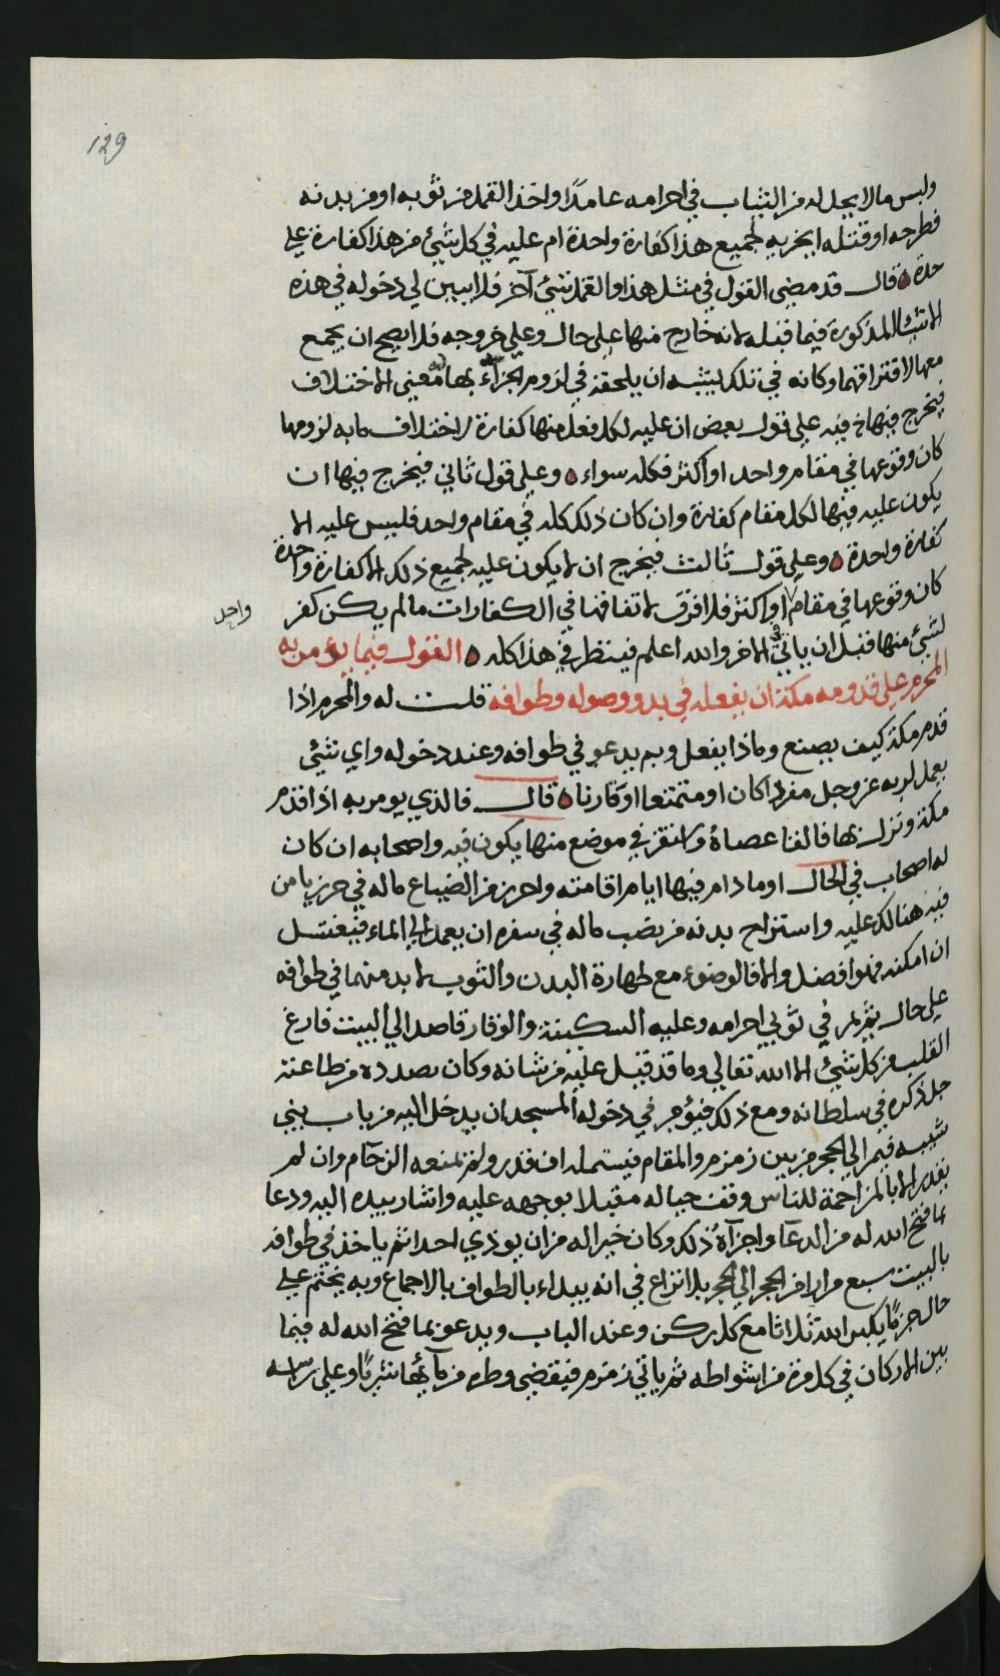 129
ولبس مالا يحل له من الثياب في احرامه عامدًا واخذ القمل من ثوبه او من بدنه
فطرحه او قتله ايجزيه لجميع هذا كفارة واحدة ام عليه في كل شيء من هذا كفارة على
حدة قال قد مضى القول في مثل هذا والقمل شيء آخر فلا يبين لي دخوله في هذه
الاشياء المذكورة فيما قبله لانه خارج منها على حال وعلى خروجه فلا يصح ان يجمع
معها لافتراقهما وكانه في تلك يشبه ان يلحقه في لزوم الجزآء بها معنى الاختلاف
فيخرج فيها فيه على قول بعض ان عليه لكل فعل منها كفارة لاختلاف ما به لزومها
كان وقوعها في مقام واحد او اكثر فكله سواء وعلى قول ثاني فيخرج فيها ان
يكون عليه فيها لكل مقام كفارة وان كان ذلك كله في مقام واحد فليس عليه الا
كفارة واحدة وعلى قول ثالث فيخرج ان لا يكون عليه لجميع ذلك الا كفارة واحدة
كان وقوعها في مقام او اكثر فلا فرق لاتفاقها في الكفارات ما لم يكن كفر
واحد
لشيء منها قبل ان ياتي الاخر والله اعلم فينظر في هذا كله القول فيما يؤمر به
المحرم على قدومه مكة ان يفعله في بدو وصوله وطوافه قلت له والمحرم اذا
قدم مكة كيف يصنع وماذا يفعل وبم يدعو في طوافه وعند دخوله واي شيء
يعمل لربه عز وجل مفردا كان او متمتعا او قارنا قال فالذي يومر به اذا قدم
مكة ونزل بها فالقا عصاه واستقر في موضع منها يكون فيه واصحابه ان كان
له اصحاب في الحال او ما دام فيها ايام اقامته واحرز من الضياع ماله في حرز يامن
فيه هنالك عليه واستراح بدنه من نصب ماله في سفره ان يعمد الى الماء فيغتسل
ان امكنه فهو افضل والا فالوضوء مع طهارة البدن والثوب لا بد منهما في طوافه
على حال ثم يمر في ثوبي احرامه وعليه السكينة والوقار قاصدا الى البيت فارغ
القلب من كل شيء الا الله تعالى وما قد قبل عليه من شانه وكان بصدده من طاعته
جل ذكره في سلطانه ومع ذلك فيؤمر في دخوله المسجد ان يدخل اليه من باب بني
شيبه فيمر الى الحجر من بين زمزم والمقام فيستمله ان قدر ولم يمنعه الزحام وان لم
يقدر الا بالمزاحمة للناس وقف حياله مقبلا بوجهه عليه واشار بيده اليه ودعا
بما فتح الله له من الدعآ واجزآه ذلك وكان خيرا له من ان يوذي احدا ثم ياخذ في طوافه
بالبيت سبع مرارا من الحجر الى الحجر بلا نزاع في انه يبداء بالطواف بالاجماع وبه يختم على
حال جزمًا يكبر الله ثلاثا مع كل ركن وعند الباب ويدعو بما فتح الله له فيما
بين الاركان في كل مرة من اشواطه ثم ياتي زمزم فيقضي وطره من مآئها شربًا وعلى راسه